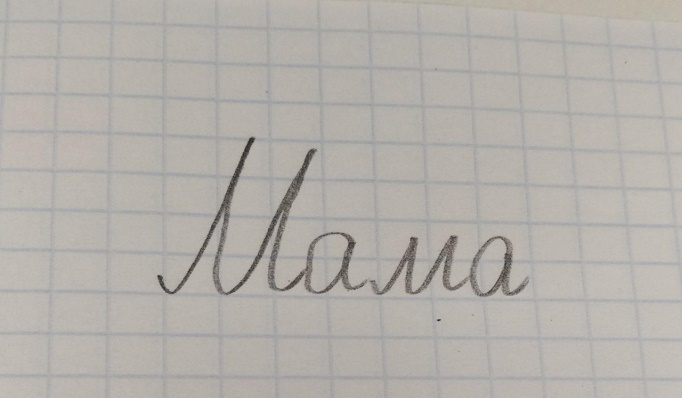 Мама